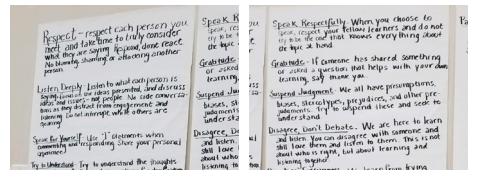 Respect - respect each person you
meet and take time to truly consider
what they are saying. Respond, dont react
No blaming, shaming or attacking another
person.
Listen Deeply. Listen to what each person is
saying. Focus on the ideas presented, and discuss
ideas and issues - not people. No side conversa-
tions as they distract from engagement and
listening. Do not interrupt while others are
Speak For Yourself. Use "I" statements when
commenting and responding. Share your personal
experience
Try to Understand. Try to understand the thoughts
Speak R
speak, res
try to be
the topic
Gratitude
or asked
learning,
Suspend Ju
biases, st
judgments
understand
Disagree, Do
and listen
still love
about who
listening
Speak Respectfully. When you choose to
speak, respect your fellow learners and do not
try to be the one that knows everything about
the topic at hand.
Gratitude - If someone has shared something
or asked a question that helps with your own
learning, say thank you.
Suspend Judgment. We all have presumptions,
biases, stereotypes, prejudices, and other pre-
judgments. Try to suspend these and seek to
understand
Disagree, Don't Debate. We are here to learn
and listen. You can disagree with someone and
still love them and listen to them. This is not
about who is right, but about learning and
listening together
from trying
Pa